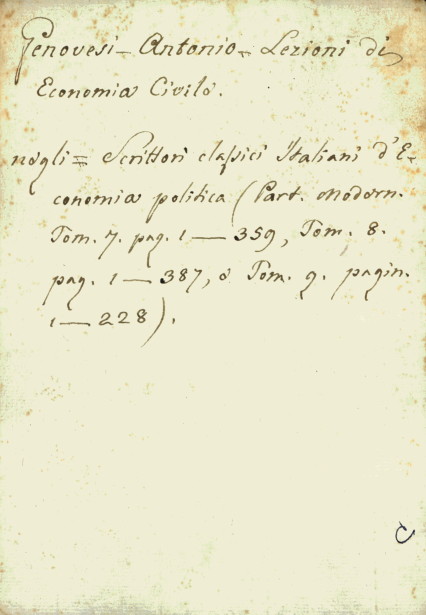 Genovesi = Antonio = Lezioni di
Economia Civile.
negli = Scrittori classici Italiani d'E-
conomia politica (Part. Modern.
Tom. 7. pag. 1 — 359, Tom. 8.
pag. 1 — 387, e Tom. 9. pagin.
1 — 228).
C